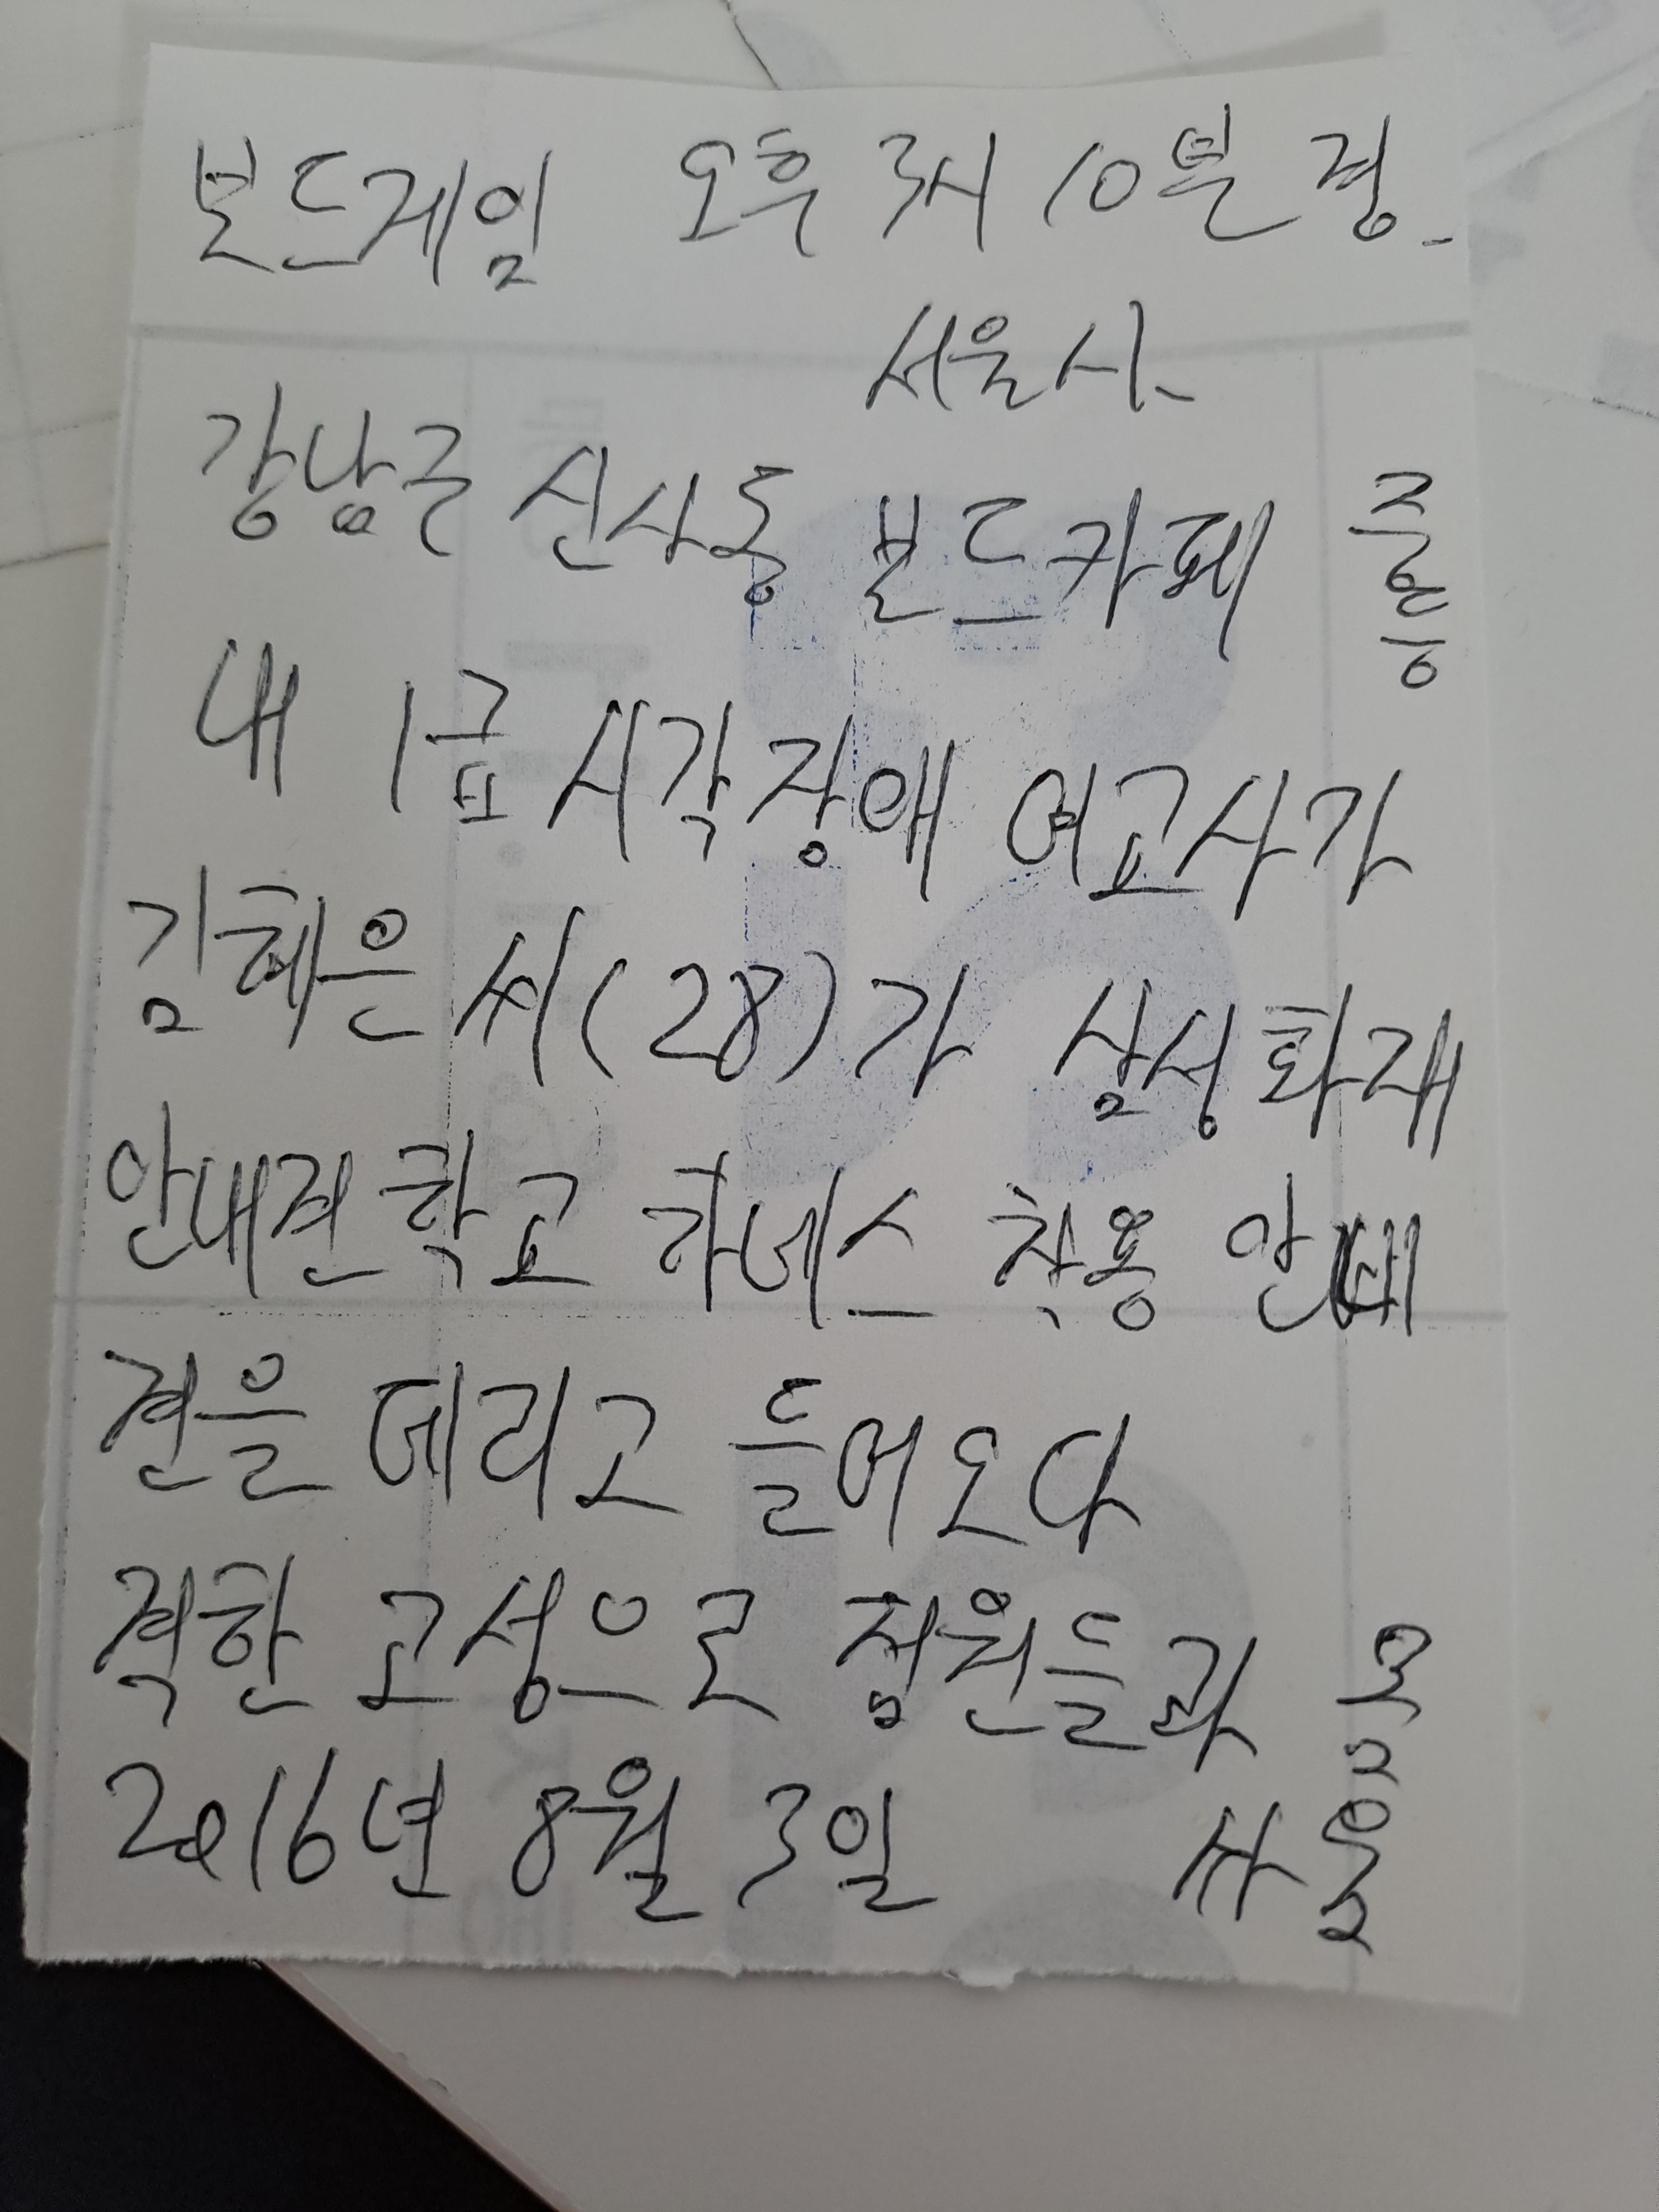 보드게임 오후 3시 10분 경
서울시
강남구 신사동 보드카페
내 1급 시각장애 여교사가
김혜은 씨(28)가 삼성화재
안내견 학교 하네스 착용 안내
견을 데리고 들어오다
격한 고성으로 점원들과
2016년 8월 3일 싸움